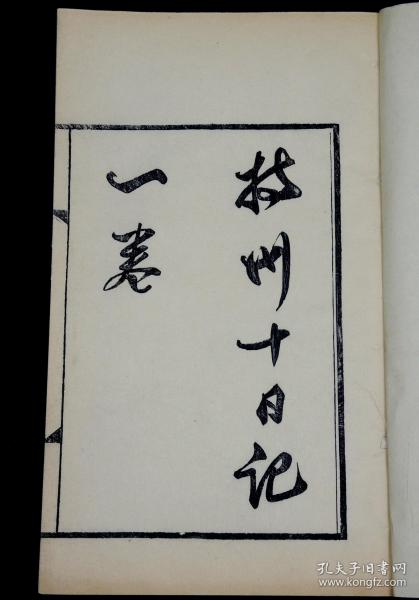 揚州十日記
一卷
孔夫子旧书网
www.kongfz.com